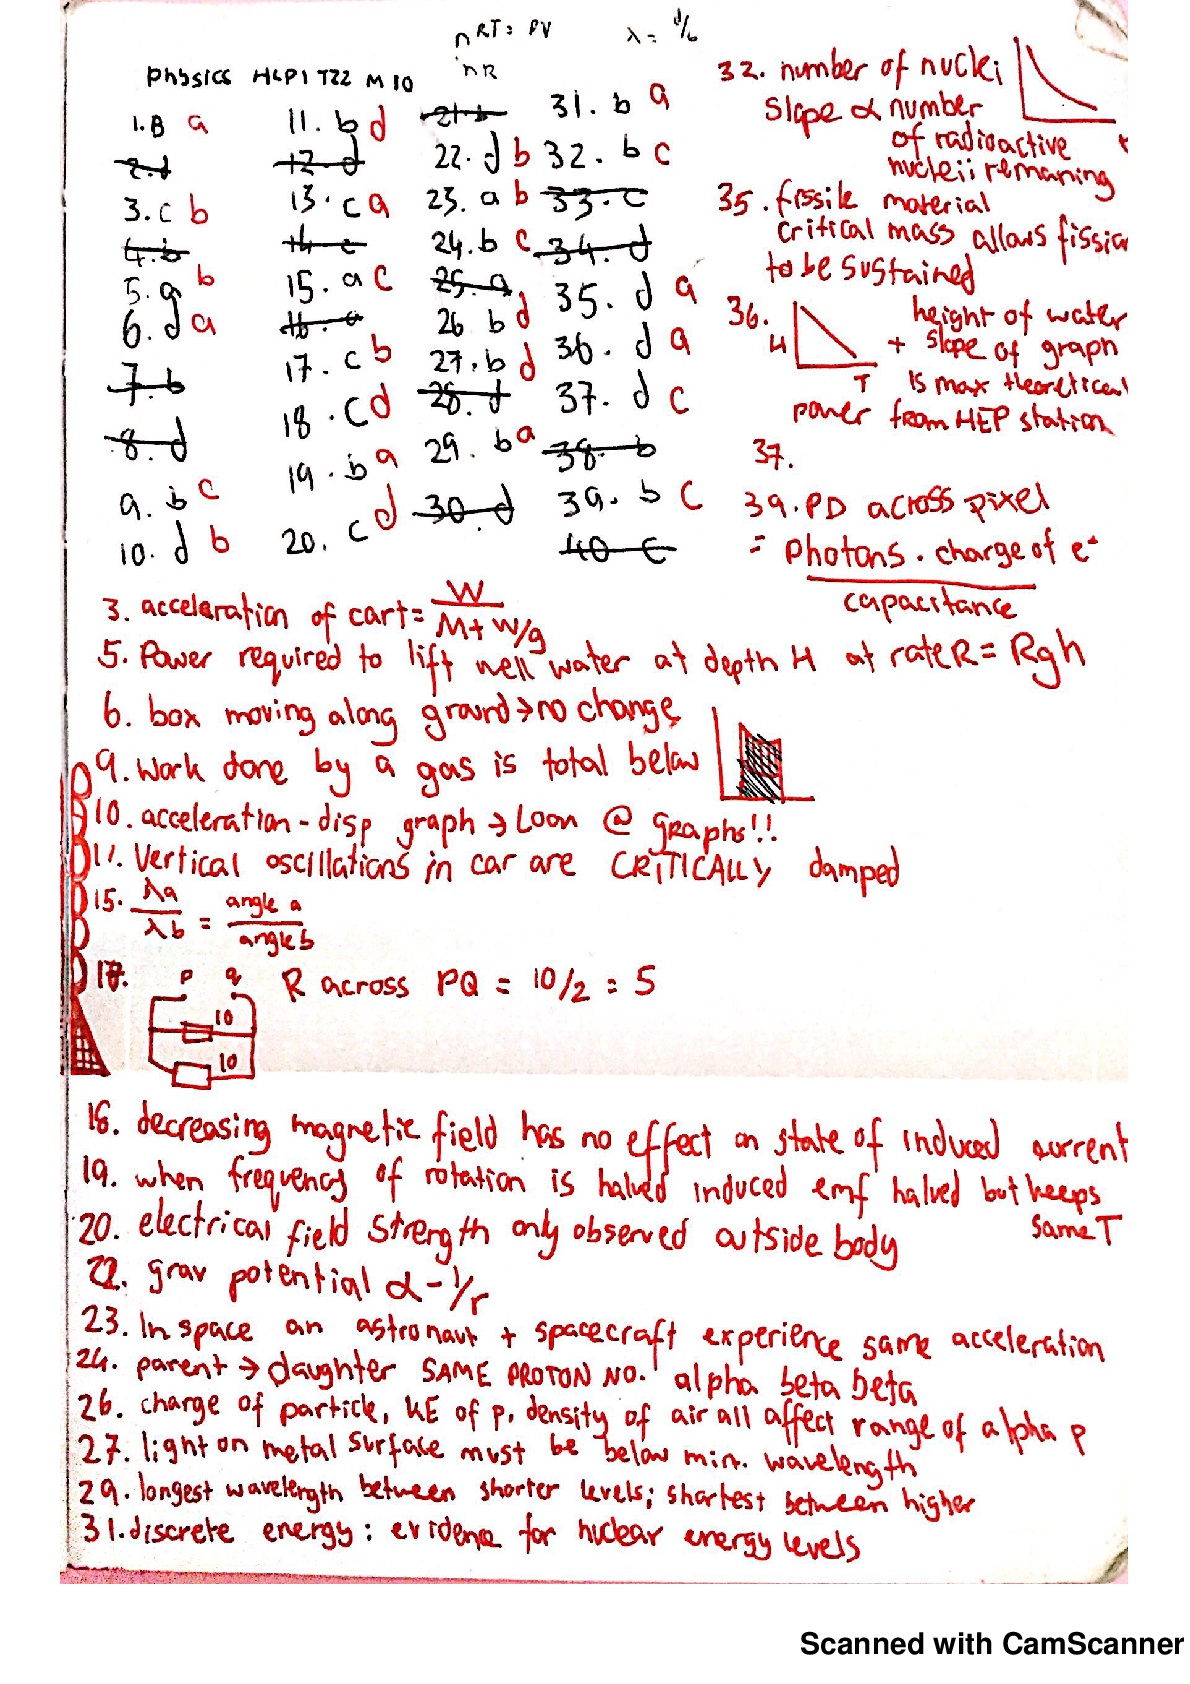 nRT = PV
λ = d/b
nR
Physics HLP1 TZ2 M10
1. B a
2. d
3. c b
4. b
5. a b
6. d a
7. b
8. d
9. b c
10. d b
11. b d
12. d
13. c a
14. c
15. a c
17. c b
18. c d
19. b a
20. c d
21. b
22. d b
23. a b
24. b c
25. a
26 b d
27. b d
28. d
29. b a
30. d
31. b a
32. b c
33. c
34. d
35. d a
36. d a
37. d c
38. b
39. b c
40 c
32. number of nuclei
slope α number
of radioactive
nucleii remaning
35. fissile material
critical mass allows fission
to be sustained
36.
H
T
height of water
+ slope of graph
is max theoretical
power from HEP station
37.
39. PD across pixel
= photons . charge of e⁺
capacitance
3. acceleration of cart = W / M + W/g
5. Power required to lift well water at depth H at rate R = Rgh
6. box moving along ground → no change
9. Work done by a gas is total below
10. acceleration - disp graph → Loon @ graphs!!
11. Vertical oscillations in car are CRITICALLY damped
15. λa / λb = angle a / angle b
17. p q R across PQ = 10/2 = 5
10
10
18. decreasing magnetic field has no effect on state of induced current
19. when frequency of rotation is halved induced emf halved but keeps
same T
20. electrical field strength only observed outside body
22. grav potential α - 1/r
23. In space an astronaut + spacecraft experience same acceleration
24. parent → daughter SAME PROTON NO. alpha beta beta
26. charge of particle, KE of p, density of air all affect range of alpha p
27. light on metal surface must be below min. wavelength
29. longest wavelength between shorter levels; shortest between higher
31. discrete energy: evidence for nuclear energy levels
Scanned with CamScanner